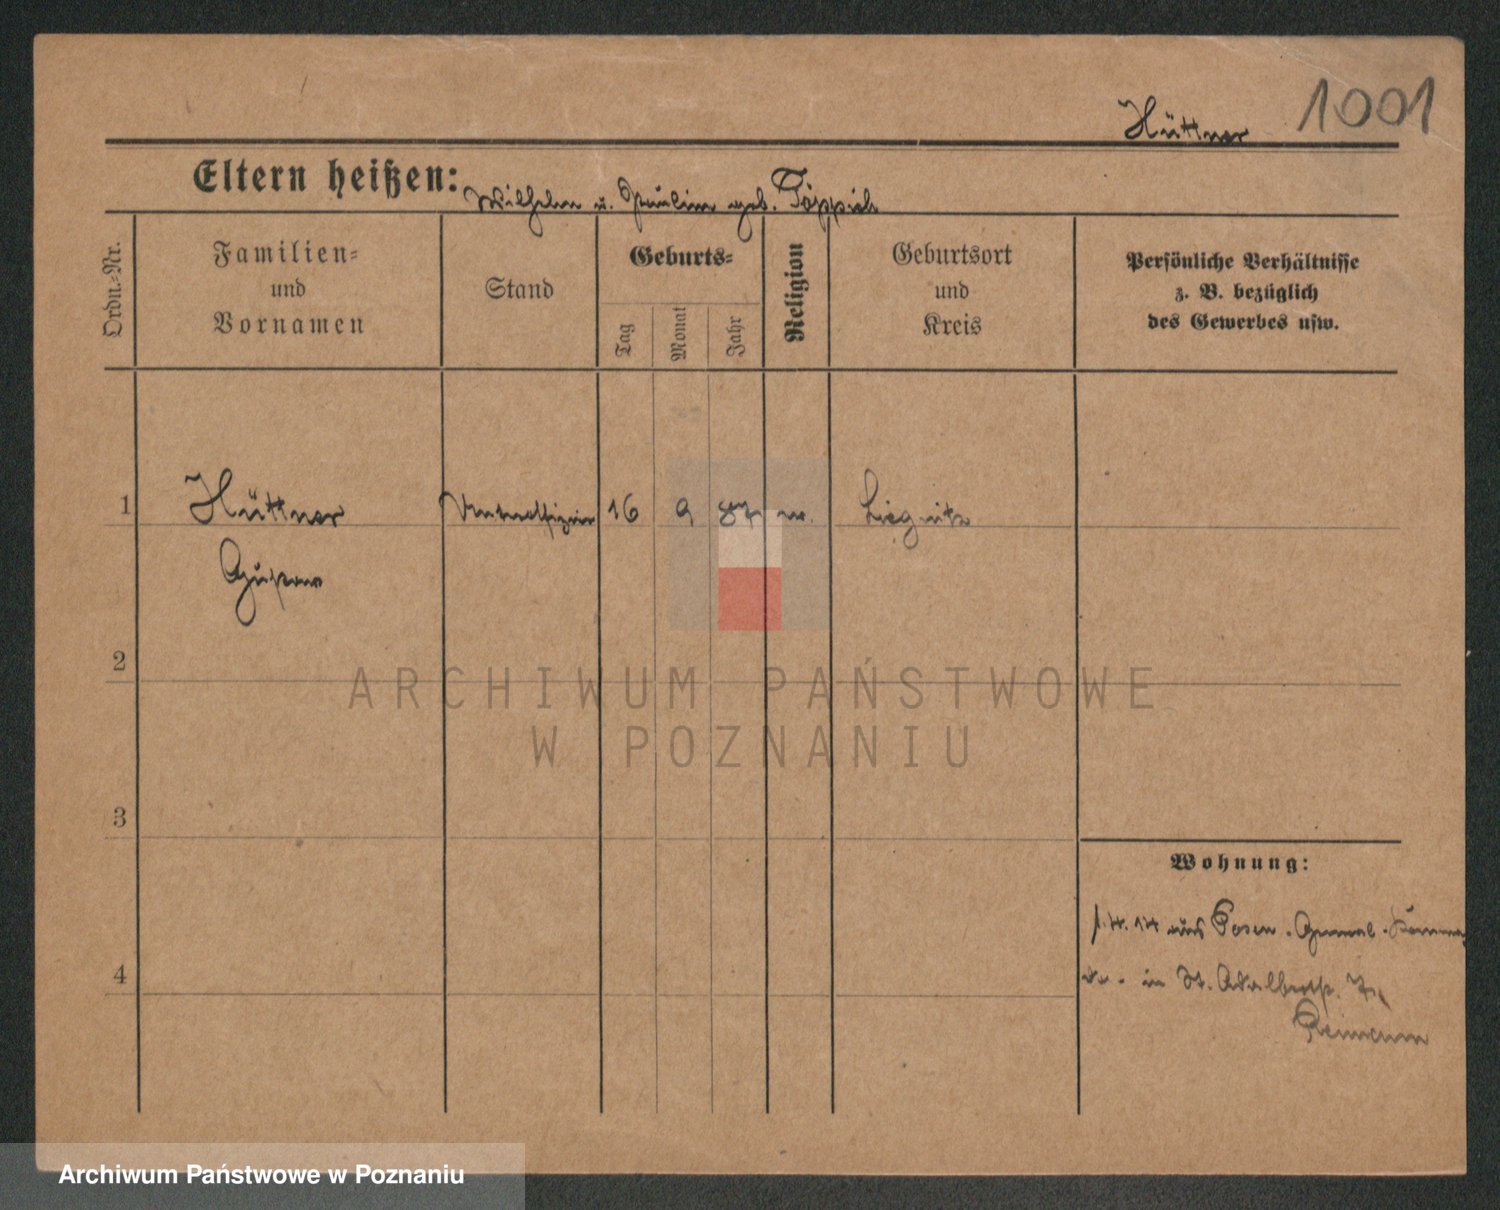 1001
Hüttner
Eltern heißen: Wilhelm u. Pauline geb. Töppich
Ordn.-Nr.
Familien-
und
Vornamen
Stand
Geburts-
Tag
Monat
Jahr
Religion
Geburtsort
und
Kreis
Persönliche Verhältnisse
z. B. bezüglich
des Gewerbes usw.
1 Hüttner Unteroffizier 16 9 87 Liegnitz
Gustav
2
3
4
Wohnung:
14 aus Posen General
in St. Adalbertstr.
Reimann
ARCHIWUM PAŃSTWOWE
W POZNANIU
Archiwum Państwowe w Poznaniu